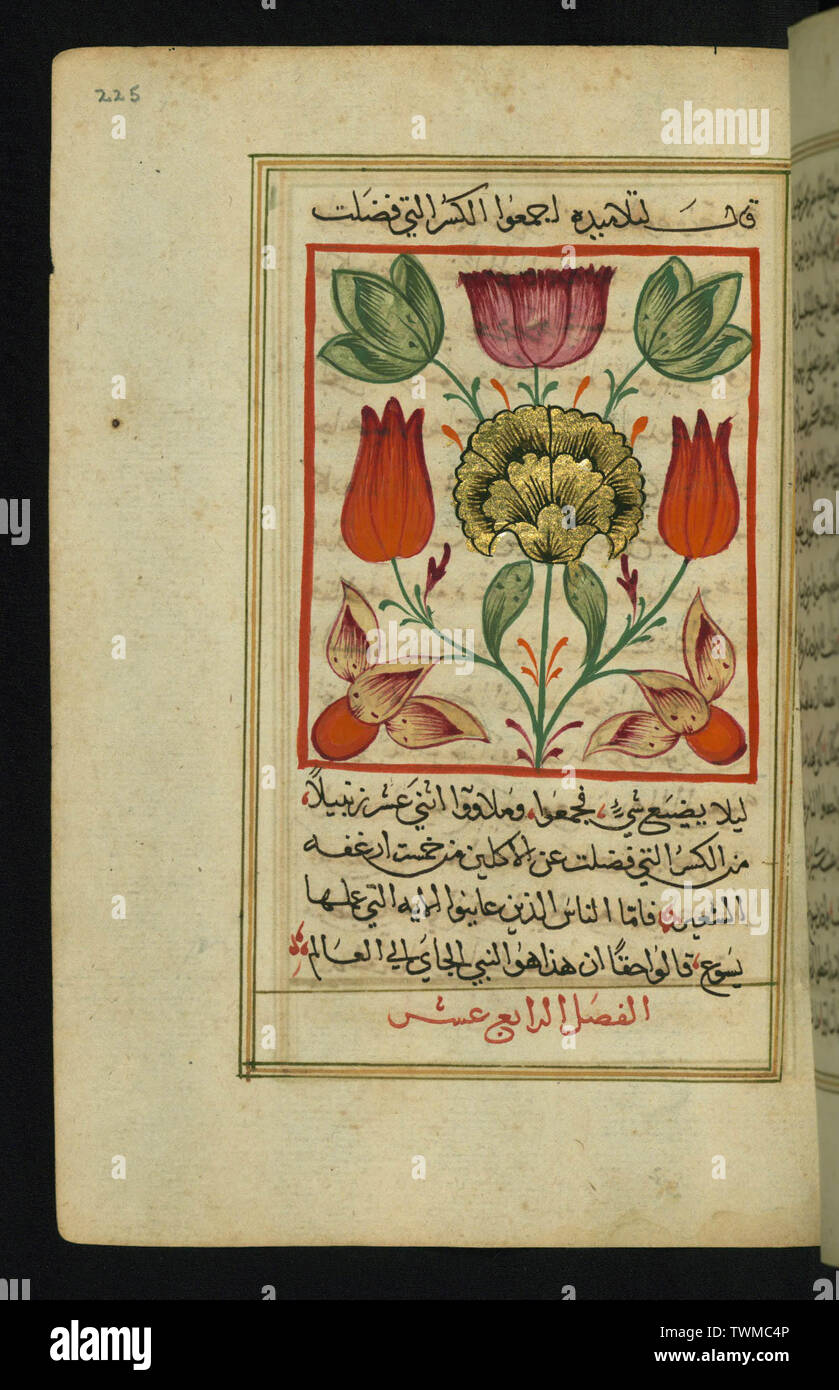 225
قال لتلاميذه اجمعوا الكسر التي فضلت
ليلا يضيع شيء، فجمعوا، وملاووا اثني عشر زنبيلاً،
من الكسر التي فضلت عن الاكلين من خمست ارغفه
الشعير، فامّا الناس الذين عاينوا الايه التي عملها
يسوع، قالوا حقاً ان هذا هو النبي الجاي الي العالم
الفصل الرابع عشر
alamy
Image ID: TWMC4P
www.alamy.com